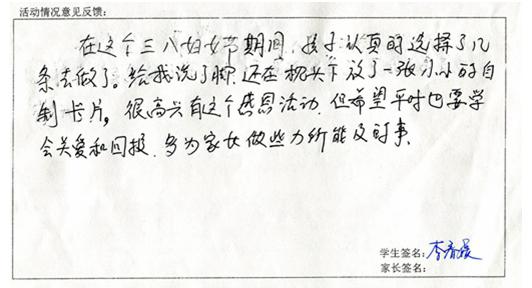 活动情况意见反馈：
在这个三八妇女节期间，孩子认真的选择了几
条去做了。给我洗了脚，还在枕头下放了一张小小的自
制卡片，很高兴有这个感恩活动，但希望平时也要学
会关爱和回报，多为家女做些力所能及的事。
学生签名：李春
家长签名：